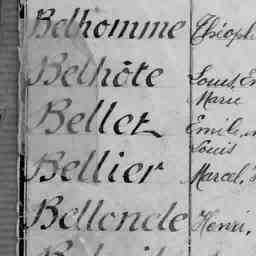 Belhomme Théoph
Belhôte Louis, E
Marie
Bellet Emile,
Louis
Bellier Marcel,
Bellencle Henri,